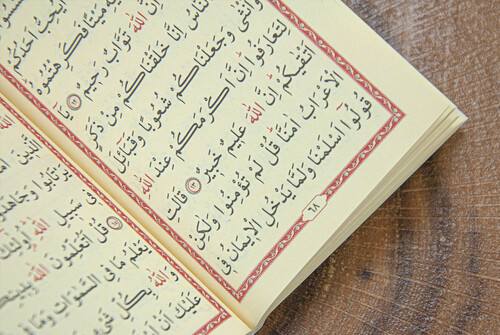 ايحب احدكم
ميتا فكرهتموه
ان الله تَوَّابٌ رَحِيمٌ ﴿١٢﴾ يَا
النَّاسُ اِنَّا خَلَقْنَاكُمْ مِنْ ذَكَرٍ
وَاُنْثٰى وَجَعَلْنَاكُمْ شُعُوبًا وَقَبَائِلَ
لِتَعَارَفُوا اِنَّ اَكْرَمَكُمْ عِنْدَ اللّٰهِ
اَتْقٰيكُمْ اِنَّ اللّٰهَ عَلِيمٌ خَبِيرٌ ﴿١٣﴾ قَالَتِ
الْاَعْرَابُ اٰمَنَّا قُلْ لَمْ تُؤْمِنُوا وَلٰكِنْ
قُولُوا اَسْلَمْنَا وَلَمَّا يَدْخُلِ الْاِيمَانُ فِي
٦٨
الَّذِينَ
يَرْتَابُوا وَجَاهَدُوا
سَبِيلِ اللّٰهِ اُولٰئِكَ
قُلْ اَتُعَلِّمُونَ اللّٰهَ
يَعْلَمُ مَا فِي السَّمٰوَاتِ وَمَا
وَاللّٰهُ بِكُلِّ
عَلَيْكَ اَنْ